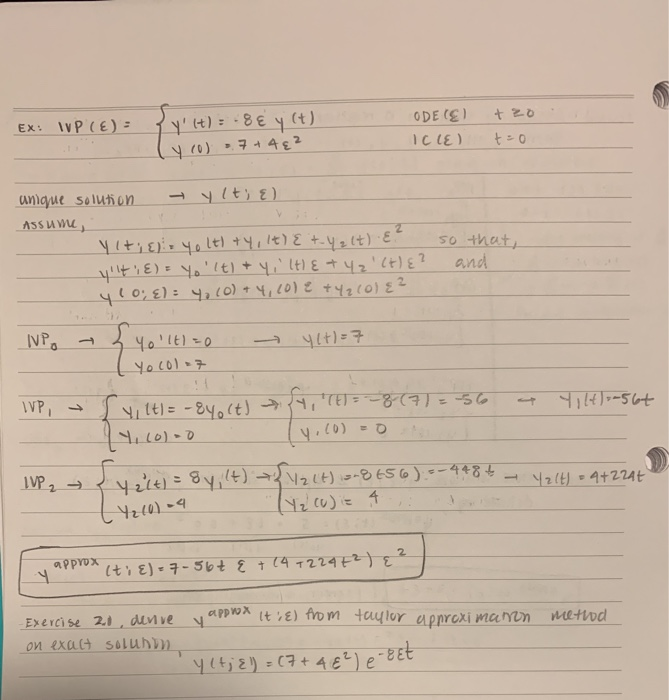 Ex: IVP(ε) = { y'(t) = -8ε y(t) ODE(ε) t≥0
y(0) = 7+4ε² IC(ε) t=0
unique solution → y(t;ε)
Assume,
y(t;ε) = y₀(t) + y₁(t)ε + y₂(t)ε² so that,
y'(t;ε) = y₀'(t) + y₁'(t)ε + y₂'(t)ε² and
y(0;ε) = y₀(0) + y₁(0)ε + y₂(0)ε²
IVP₀ → { y₀'(t) = 0 → y(t) = 7
y₀(0) = 7
IVP₁ → { y₁(t) = -8y₀(t) → { y₁'(t) = -8(7) = -56 → y₁(t) = -56t
y₁(0) = 0 y₁(0) = 0
IVP₂ → { y₂'(t) = 8y₁(t) → { y₂(t) = -8(-56) = -448t → y₂(t) = 4+224t
y₂(0) = 4 y₂(0) = 4
y^approx (t;ε) = 7-56t ε + (4+224t²) ε²
Exercise 21, derive y^approx (t;ε) from taylor approximation method
on exact solution,
y(t;ε) = (7+4ε²) e^-8εt